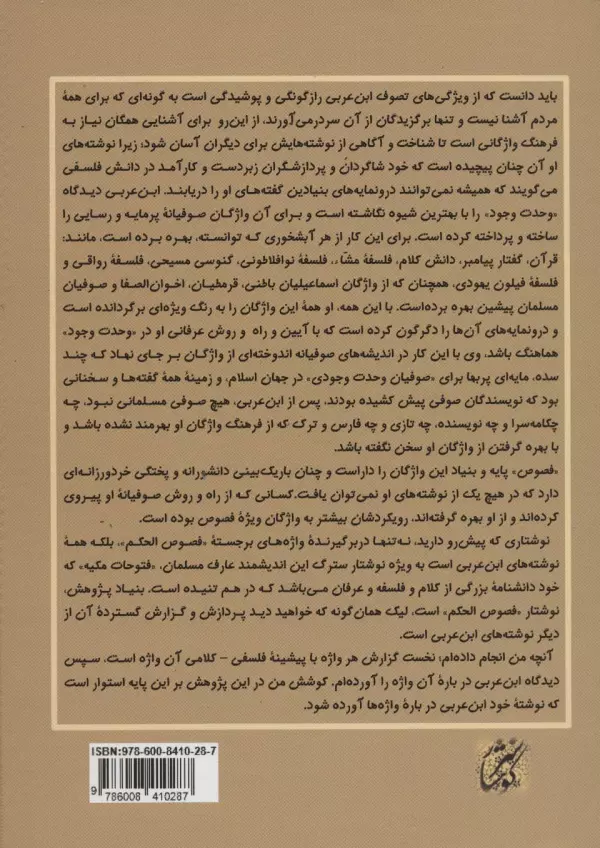 باید دانست که از ویژگی‌های تصوف ابن‌عربی رازگونگی و پوشیدگی است به گونه‌ای که برای همهٔ
مردم آشنا نیست و تنها برگزیدگان از آن سردرمی‌آورند، از این‌رو برای آشنایی همگان نیاز به
فرهنگ واژگانی است تا شناخت و آگاهی از نوشته‌هایش برای دیگران آسان شود؛ زیرا نوشته‌های
او آن چنان پیچیده است که خود شاگردان و پردازشگران زبردست و کارآمد در دانش فلسفی
می‌گویند که همیشه نمی‌توانند درونمایه‌های بنیادین گفته‌های او را دریابند. ابن‌عربی دیدگاه
«وحدت وجود» را با بهترین شیوه نگاشته است و برای آن واژگان صوفیانهٔ پرمایه و رسایی را
ساخته و پرداخته کرده است. برای این کار از هر آبشخوری که توانسته، بهره برده است، مانند:
قرآن، گفتار پیامبر، دانش کلام، فلسفهٔ مشّاء، فلسفهٔ نوافلاطونی، گنوسی مسیحی، فلسفهٔ رواقی و
فلسفهٔ فیلون یهودی. همچنان که از واژگان اسماعیلیان باطنی، قرمطیان، اخوان‌الصفا و صوفیان
مسلمان پیشین بهره برده‌است. با این همه، او همهٔ این واژگان را به رنگ ویژه‌ای برگردانده است
و درونمایه‌های آن‌ها را دگرگون کرده است که با آیین و راه و روش عرفانی او در «وحدت وجود»
هماهنگ باشد، وی با این کار در اندیشه‌های صوفیانه اندوخته‌ای از واژگان بر جای نهاد که چند
سده، مایه‌ای پربها برای «صوفیان وحدت وجودی» در جهان اسلام، و زمینهٔ همهٔ گفته‌ها و سخنانی
بود که نویسندگان صوفی پیش کشیده بودند. پس از ابن‌عربی، هیچ صوفی مسلمانی نبود، چه
چکامه‌سرا و چه نویسنده، چه تازی و چه فارس و ترک که از فرهنگ واژگان او بهرمند نشده باشد و
با بهره گرفتن از واژگان او سخن نگفته باشد.
«فصوص» پایه و بنیاد این واژگان را داراست و چنان باریک‌بینی دانشورانه و پختگی خردورزانه‌ای
دارد که در هیچ یک از نوشته‌های او نمی‌توان یافت.کسانی که از راه و روش صوفیانهٔ او پیروی
کرده‌اند و از او بهره گرفته‌اند، رویکردشان بیشتر به واژگان ویژهٔ فصوص بوده است.
نوشتاری که پیش‌رو دارید، نه‌تنها دربرگیرندهٔ واژه‌های برجستهٔ «فصوص الحکم»، بلکه همهٔ
نوشته‌های ابن‌عربی است به ویژه نوشتار سترگ این اندیشمند عارف مسلمان، «فتوحات مکیه» که
خود دانشنامهٔ بزرگی از کلام و فلسفه و عرفان می‌باشد که در هم تنیده است. بنیاد پژوهش،
نوشتار «فصوص الحکم» است، لیک همان‌گونه که خواهید دید پردازش و گزارش گستردهٔ آن از
دیگر نوشته‌های ابن‌عربی است.
آنچه من انجام داده‌ام؛ نخست گزارش هر واژه با پیشینهٔ فلسفی – کلامی آن واژه است. سپس
دیدگاه ابن‌عربی در بارهٔ آن واژه را آورده‌ام. کوشش من در این پژوهش بر این پایه استوار است
که نوشتهٔ خود ابن‌عربی در بارهٔ واژه‌ها آورده شود.
ISBN:978-600-8410-28-7
9 786008 410287